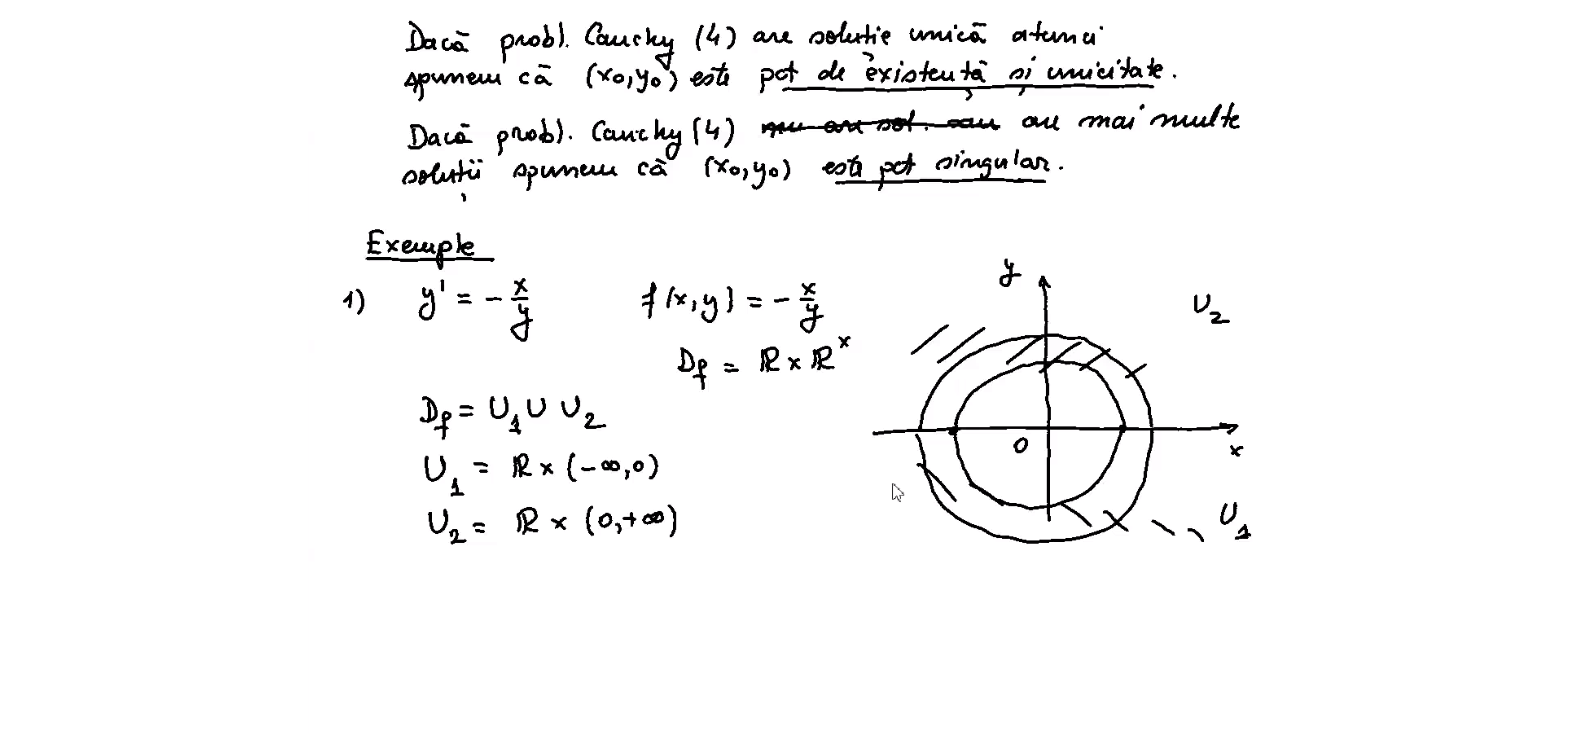 Dacă probl. Cauchy (4) are soluție unică atunci
spunem că (x₀,y₀) este pct de existență și unicitate.
Dacă probl. Cauchy (4) nu are sol. sau are mai multe
soluții spunem că (x₀,y₀) este pct singular.
Exemple
1) y' = -x/y f(x,y) = -x/y
D_f = ℝ × ℝ^×
D_f = U₁ ∪ U₂
U₁ = ℝ × (-∞,0)
U₂ = ℝ × (0,+∞)
y
U₂
0
x
U₁